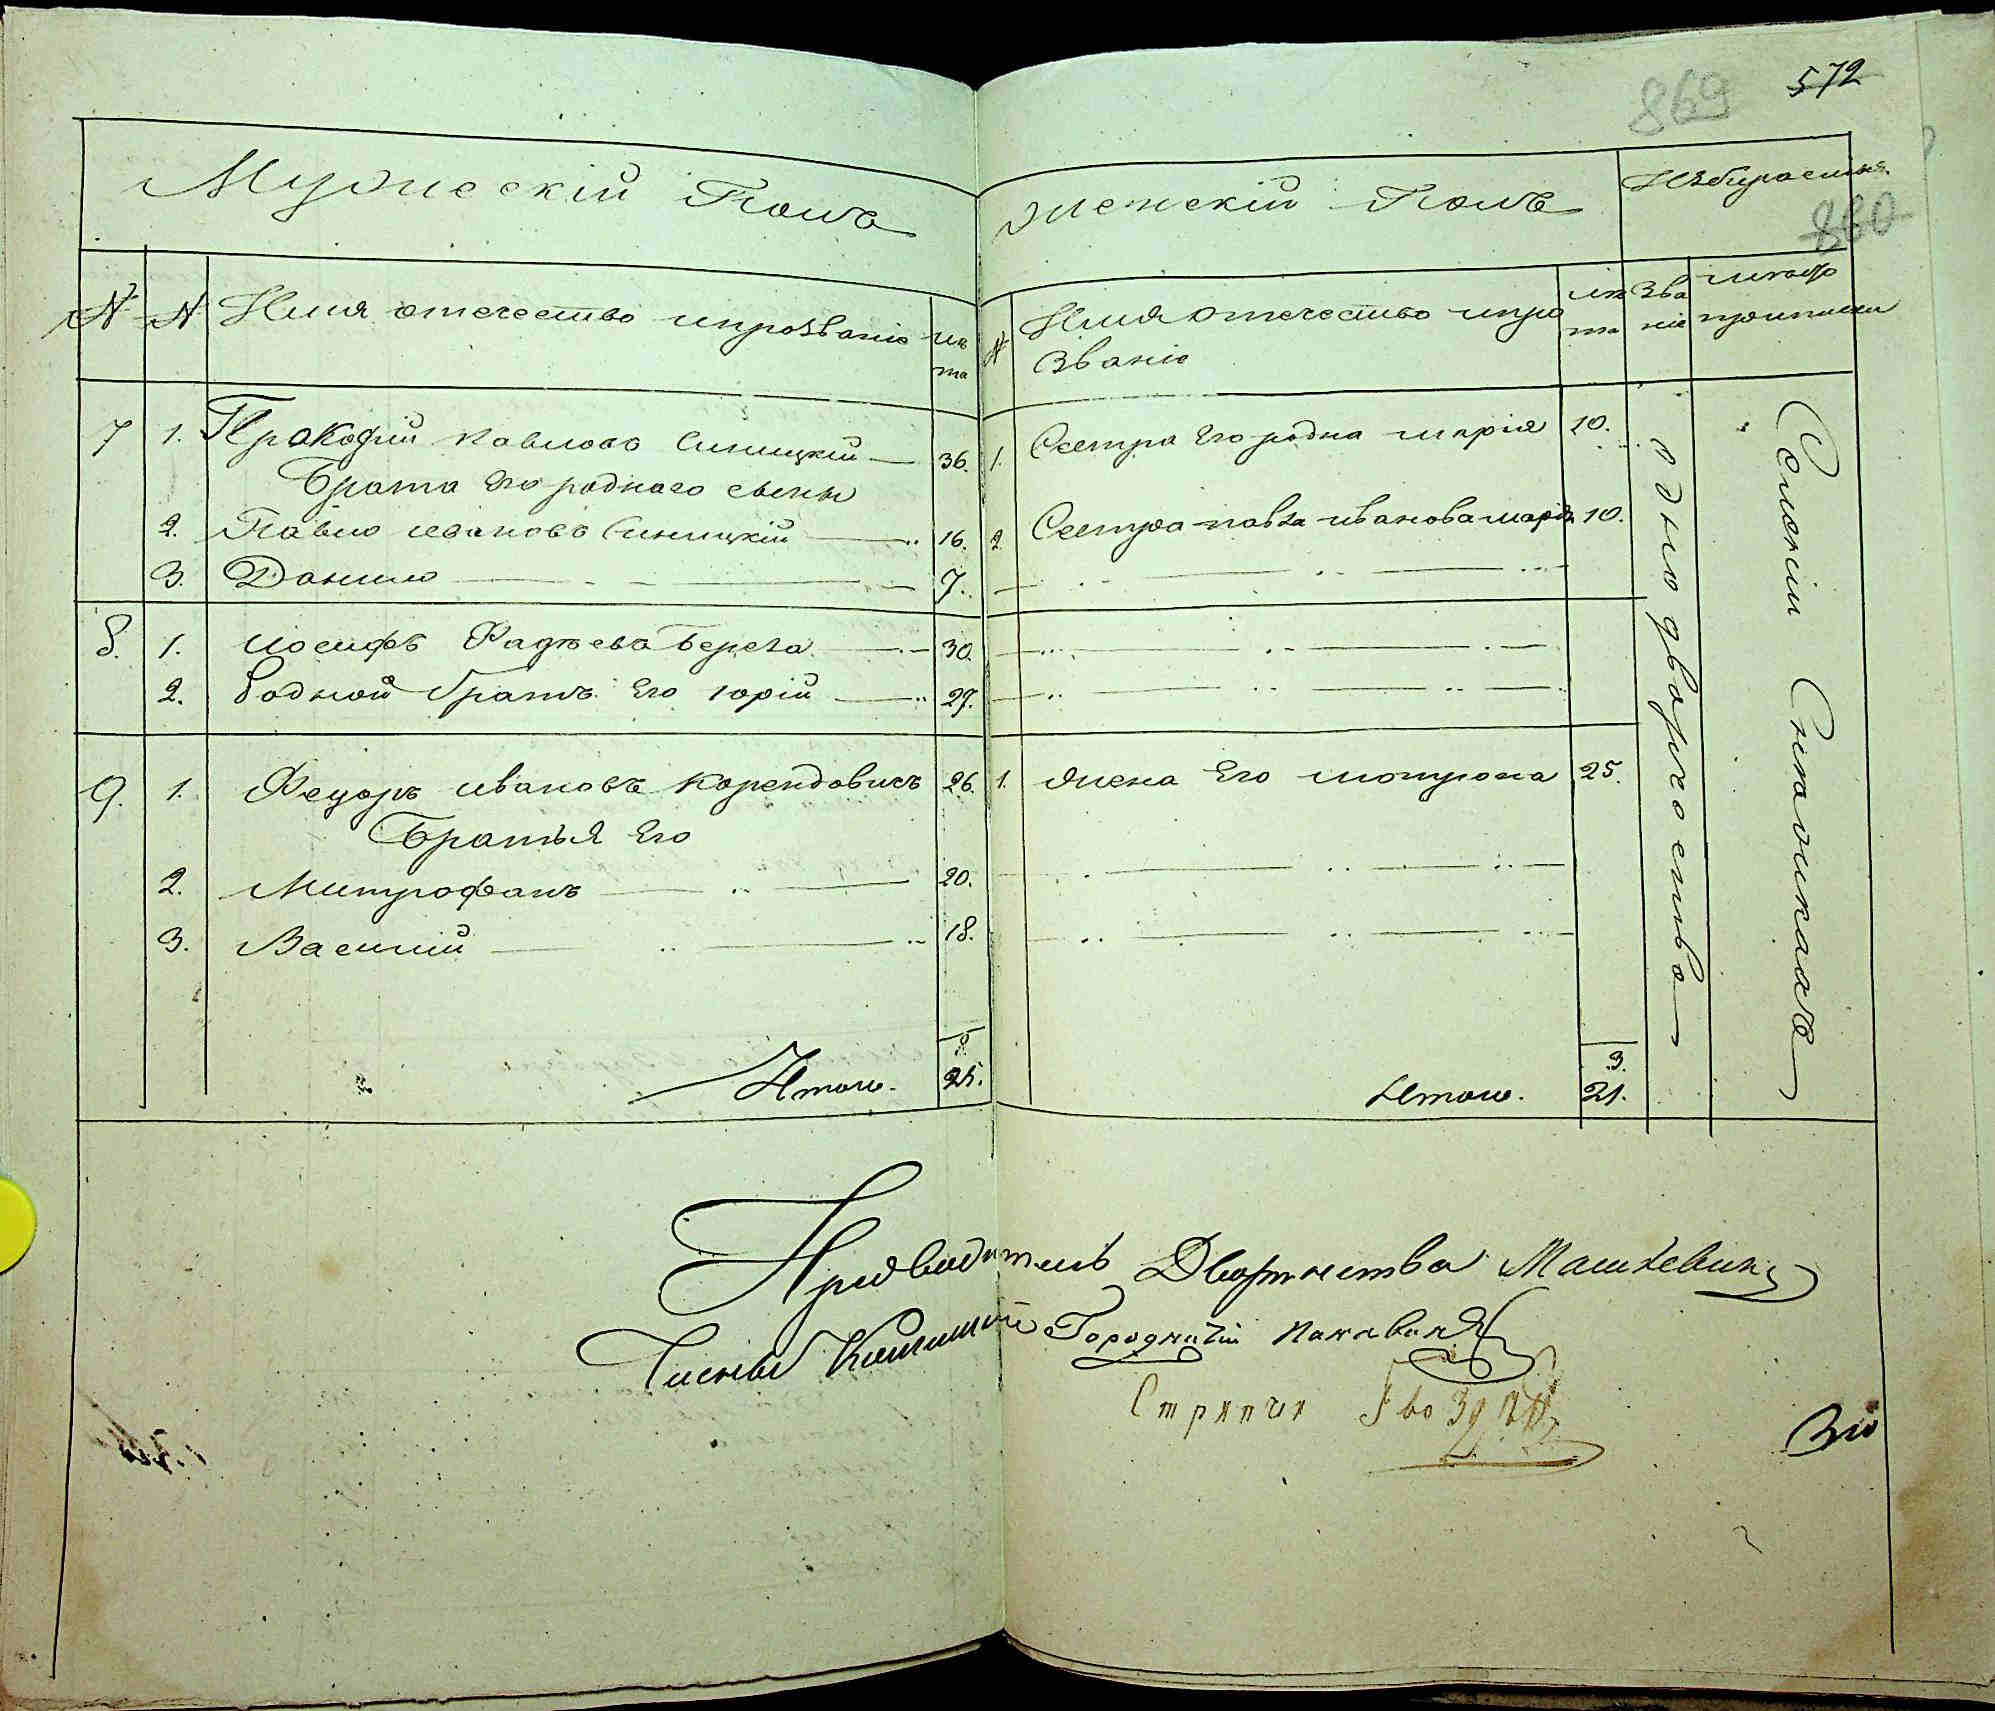 869 572
Мужескій Полъ Женскій Полъ Избираемыя
880
№ № Имя отечество ипрозваніе лѣта № Имя отечество ипрозваніе лѣта Званіе
7 1. Прокофій Павловъ Синицкій 36. 1. Сестра Его родна Марія 10.
Брата Его роднаго сыны
2. Павло Ивановъ Синицкій 16. 2 Сестра Павла Иванова Марія 10.
3. Данило 7.
8. 1. Іосифъ Фадѣевъ Берега 30.
2. Родной братъ Его Юрій 27.
9. 1. Федоръ Ивановъ Корендовичъ 26. 1. Жена Его Мотрона 25.
Братья Его
2. Митрофанъ 20.
3. Василій 18.
Однодворчество
8
Итого. 25.
3.
Итого. 21.
Предводитель Дворянства Машкевичъ
Городничій
Стряпчій